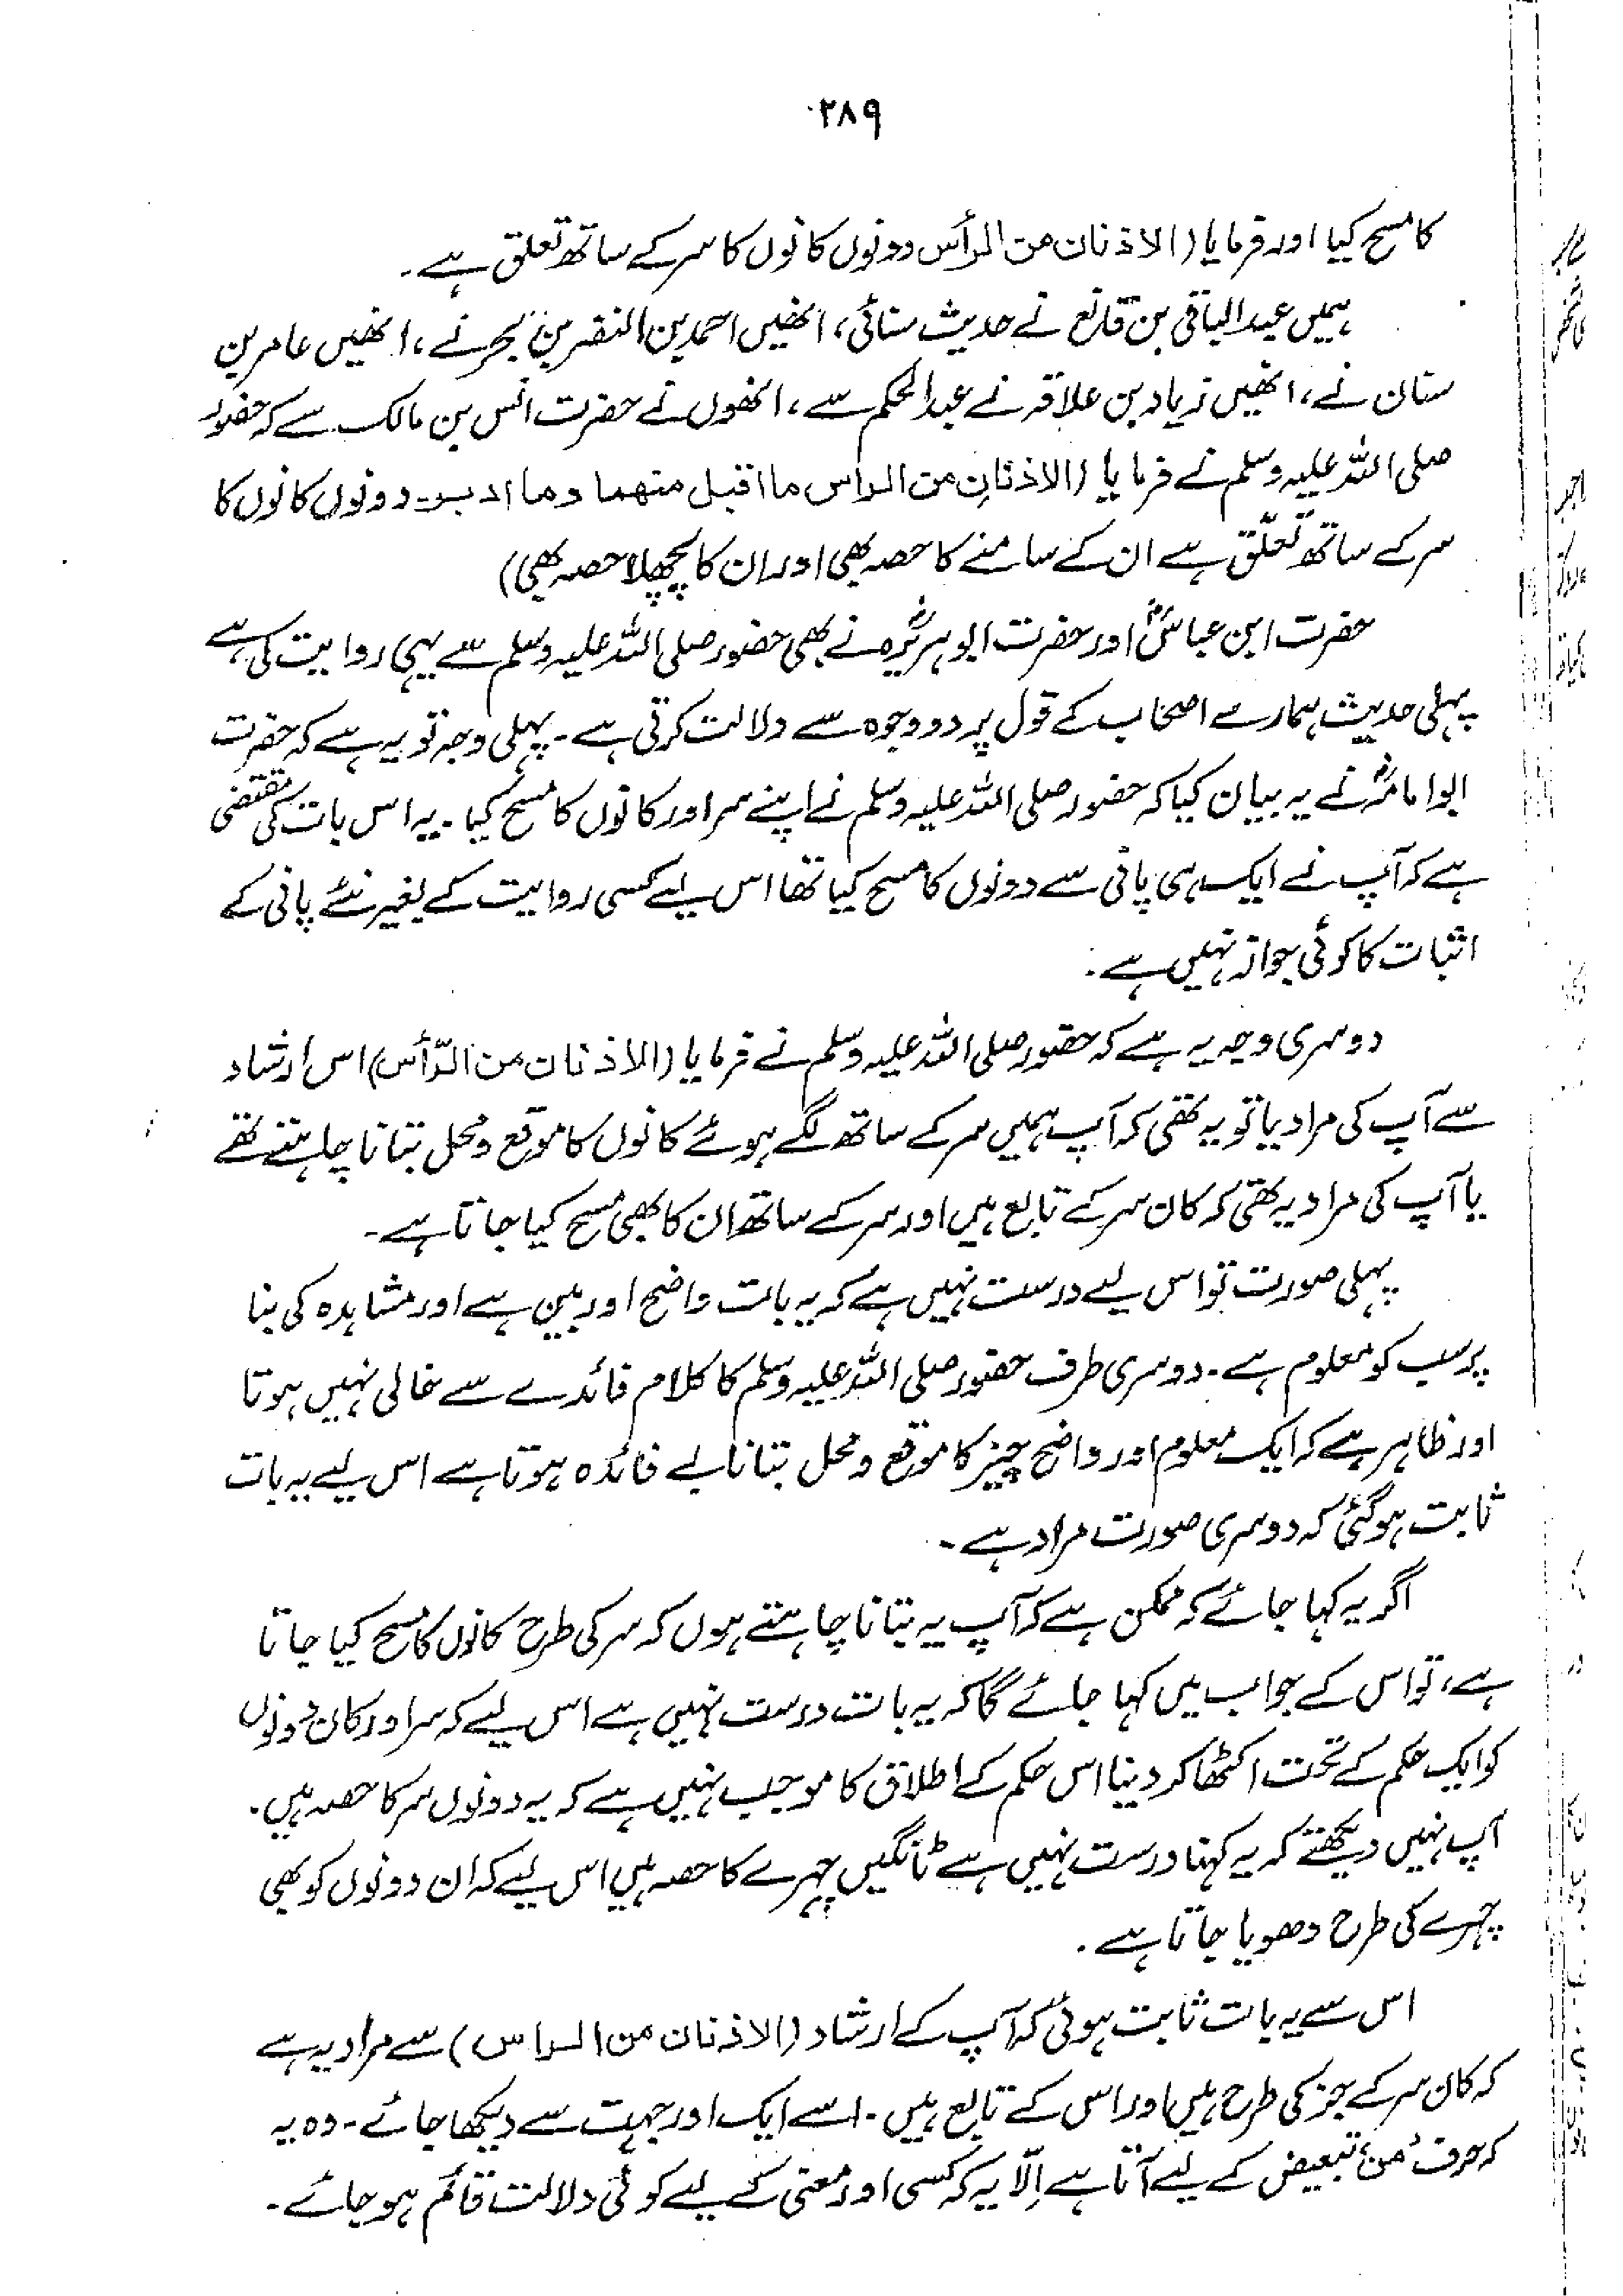 ۲۸۹
کا مسح کیا اور فرمایا (الاذنان من الرأس دونوں کانوں کا سر کے ساتھ تعلق ہے۔
ہمیں عبدالباقی بن قانع نے حدیث سنائی، انھیں احمد بن النضر بن بحر نے، انھیں عامر بن
سنان نے، انھیں زیاد بن علاقہ نے عبدالحکم سے، انھوں نے حضرت انس بن مالک سے کہ حضور
صلی اللہ علیہ وسلم نے فرمایا (الاذنان من الراس ما اقبل منھما وما ادبر۔ دونوں کانوں کا
سر کے ساتھ تعلّق ہے ان کے سامنے کا حصہ بھی اور ان کا پچھلا حصہ بھی)
حضرت ابن عباسؓ اور حضرت ابوہریرہؓ نے بھی حضور صلی اللہ علیہ وسلم سے یہی روایت کی ہے
پہلی حدیث ہمارے اصحاب کے قول پر دو وجوہ سے دلالت کرتی ہے۔ پہلی وجہ تو یہ ہے کہ حضرت
ابوامامہؓ نے یہ بیان کیا کہ حضور صلی اللہ علیہ وسلم نے اپنے سر اور کانوں کا مسح کیا۔ یہ اس بات کی مقتضی
ہے کہ آپ نے ایک ہی پانی سے دونوں کا مسح کیا تھا اس لیے کسی روایت کے بغیر نئے پانی کے
اثبات کا کوئی جواز نہیں ہے۔
دوسری وجہ یہ ہے کہ حضور صلی اللہ علیہ وسلم نے فرمایا (الاذنان من الرّأس) اس ارشاد
سے آپ کی مراد یا تو یہ تھی کہ آپ ہمیں سر کے ساتھ لگے ہوئے کانوں کا موقع و محل بتانا چاہتے تھے
یا آپ کی مراد یہ تھی کہ کان سر کے تابع ہیں اور سر کے ساتھ ان کا بھی مسح کیا جاتا ہے۔
پہلی صورت تو اس لیے درست نہیں ہے کہ یہ بات واضح اور بین ہے اور مشاہدہ کی بنا
پر سب کو معلوم ہے۔ دوسری طرف حضور صلی اللہ علیہ وسلم کا کلام فائدے سے خالی نہیں ہوتا
اور ظاہر ہے کہ ایک معلوم اور واضح چیز کا موقع و محل بتانا بے فائدہ ہوتا ہے اس لیے یہ بات
ثابت ہو گئی کہ دوسری صورت مراد ہے۔
اگر یہ کہا جائے کہ ممکن ہے کہ آپ یہ بتانا چاہتے ہوں کہ سر کی طرح کانوں کا مسح کیا جاتا
ہے، تو اس کے جواب میں کہا جائے گا کہ یہ بات درست نہیں ہے اس لیے کہ سر اور کان دونوں
کو ایک حکم کے تحت اکٹھا کر دینا اس حکم کے اطلاق کا موجب نہیں ہے کہ یہ دونوں سر کا حصہ ہیں۔
آپ نہیں دیکھتے کہ یہ کہنا درست نہیں ہے ٹانگیں چہرے کا حصہ ہیں اس لیے کہ ان دونوں کو بھی
چہرے کی طرح دھویا جاتا ہے۔
اس سے یہ بات ثابت ہوئی کہ آپ کے ارشاد (الاذنان من الراس) سے مراد یہ ہے
کہ کان سر کے جز کی طرح ہیں اور اس کے تابع ہیں۔ اسے ایک اور جہت سے دیکھا جائے۔ وہ یہ
کہ حرف 'من' تبعیض کے لیے آتا ہے اِلّا یہ کہ کسی اور معنی کے لیے کوئی دلالت قائم ہو جائے۔